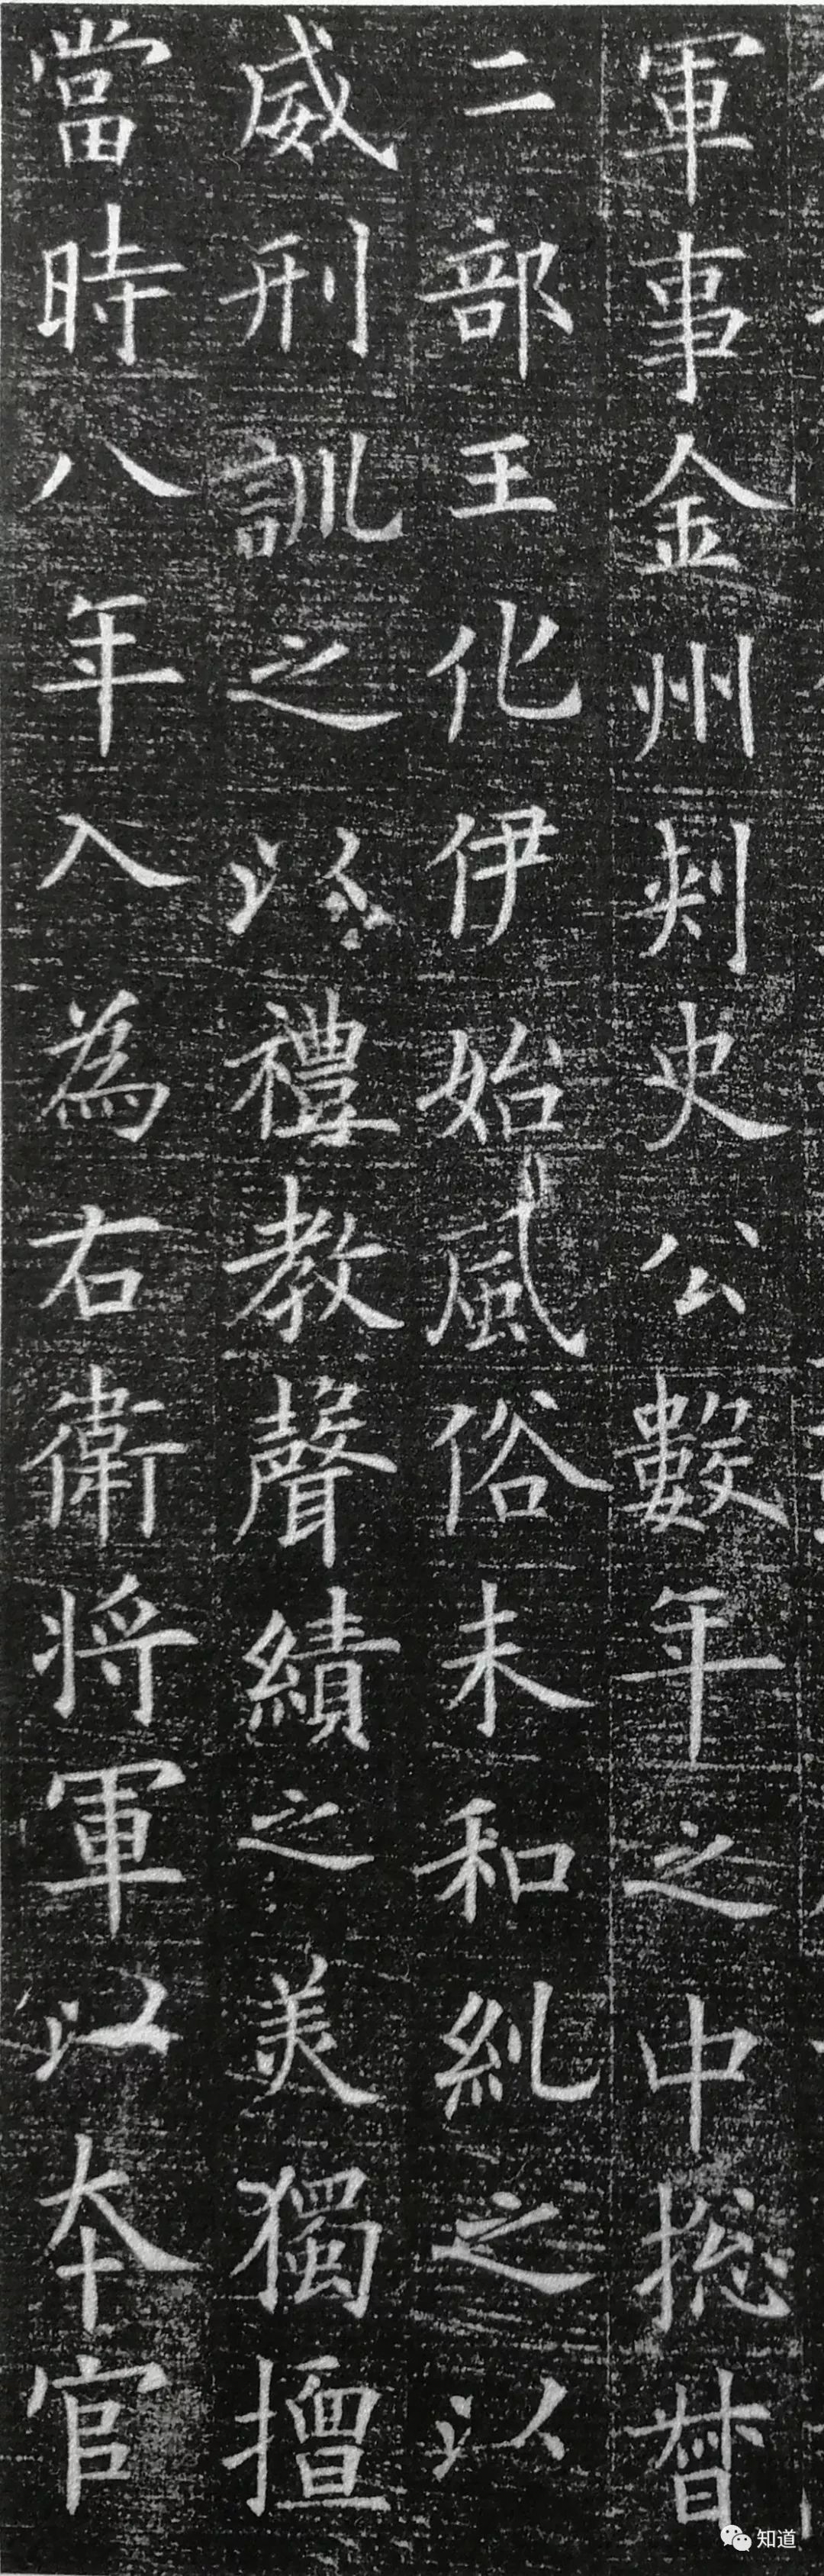 軍事金州刾史公數年之中捴晉
二部王化伊始風俗未和糺之以
威刑訓之以禮教聲績之美獨擅
當時八年入為右衛将軍以夲官
知道